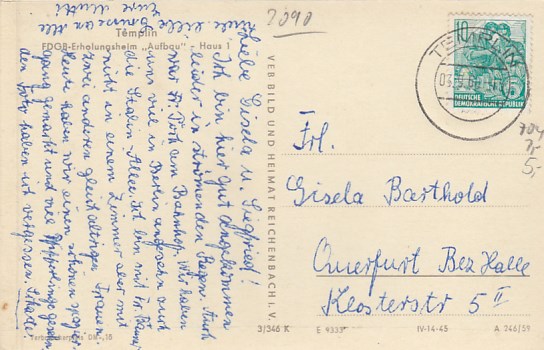 2090
Templin
FDGB-Erholungsheim „Aufbau" - Haus 1
Liebe Gisela u. Siegfried!
Ich bin hier gut angekommen
leider in strömenden Regen. Auch
war Fr. am Bahnhof. Wir haben
uns viel in Berlin angesehn auch
die Stalin-Allee. Ich bin mit Fr.
nicht in einem Zimmer aber mit
zwei anderen gleichaltrigen Frauen.
Heute haben wir einen schönen spazier
gang gemacht und viel gesehen
den Foto haben wir vergessen. Schade!
viele liebe Grüsse an alle
Eure Mutti
Verbraucherpreis DM -,18
VEB BILD UND HEIMAT REICHENBACH I. V.
TEMPLIN
10
5
DEUTSCHE
DEMOKRATISCHE REPUBLIK
5,-
Frl.
Gisela Barthold
Querfurt Bez Halle
Klosterstr 5 II
3/346 K E 9333 IV-14-45 A 246/59